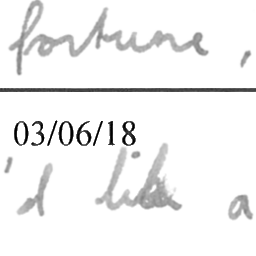 fortune,
03/06/18
'd like a